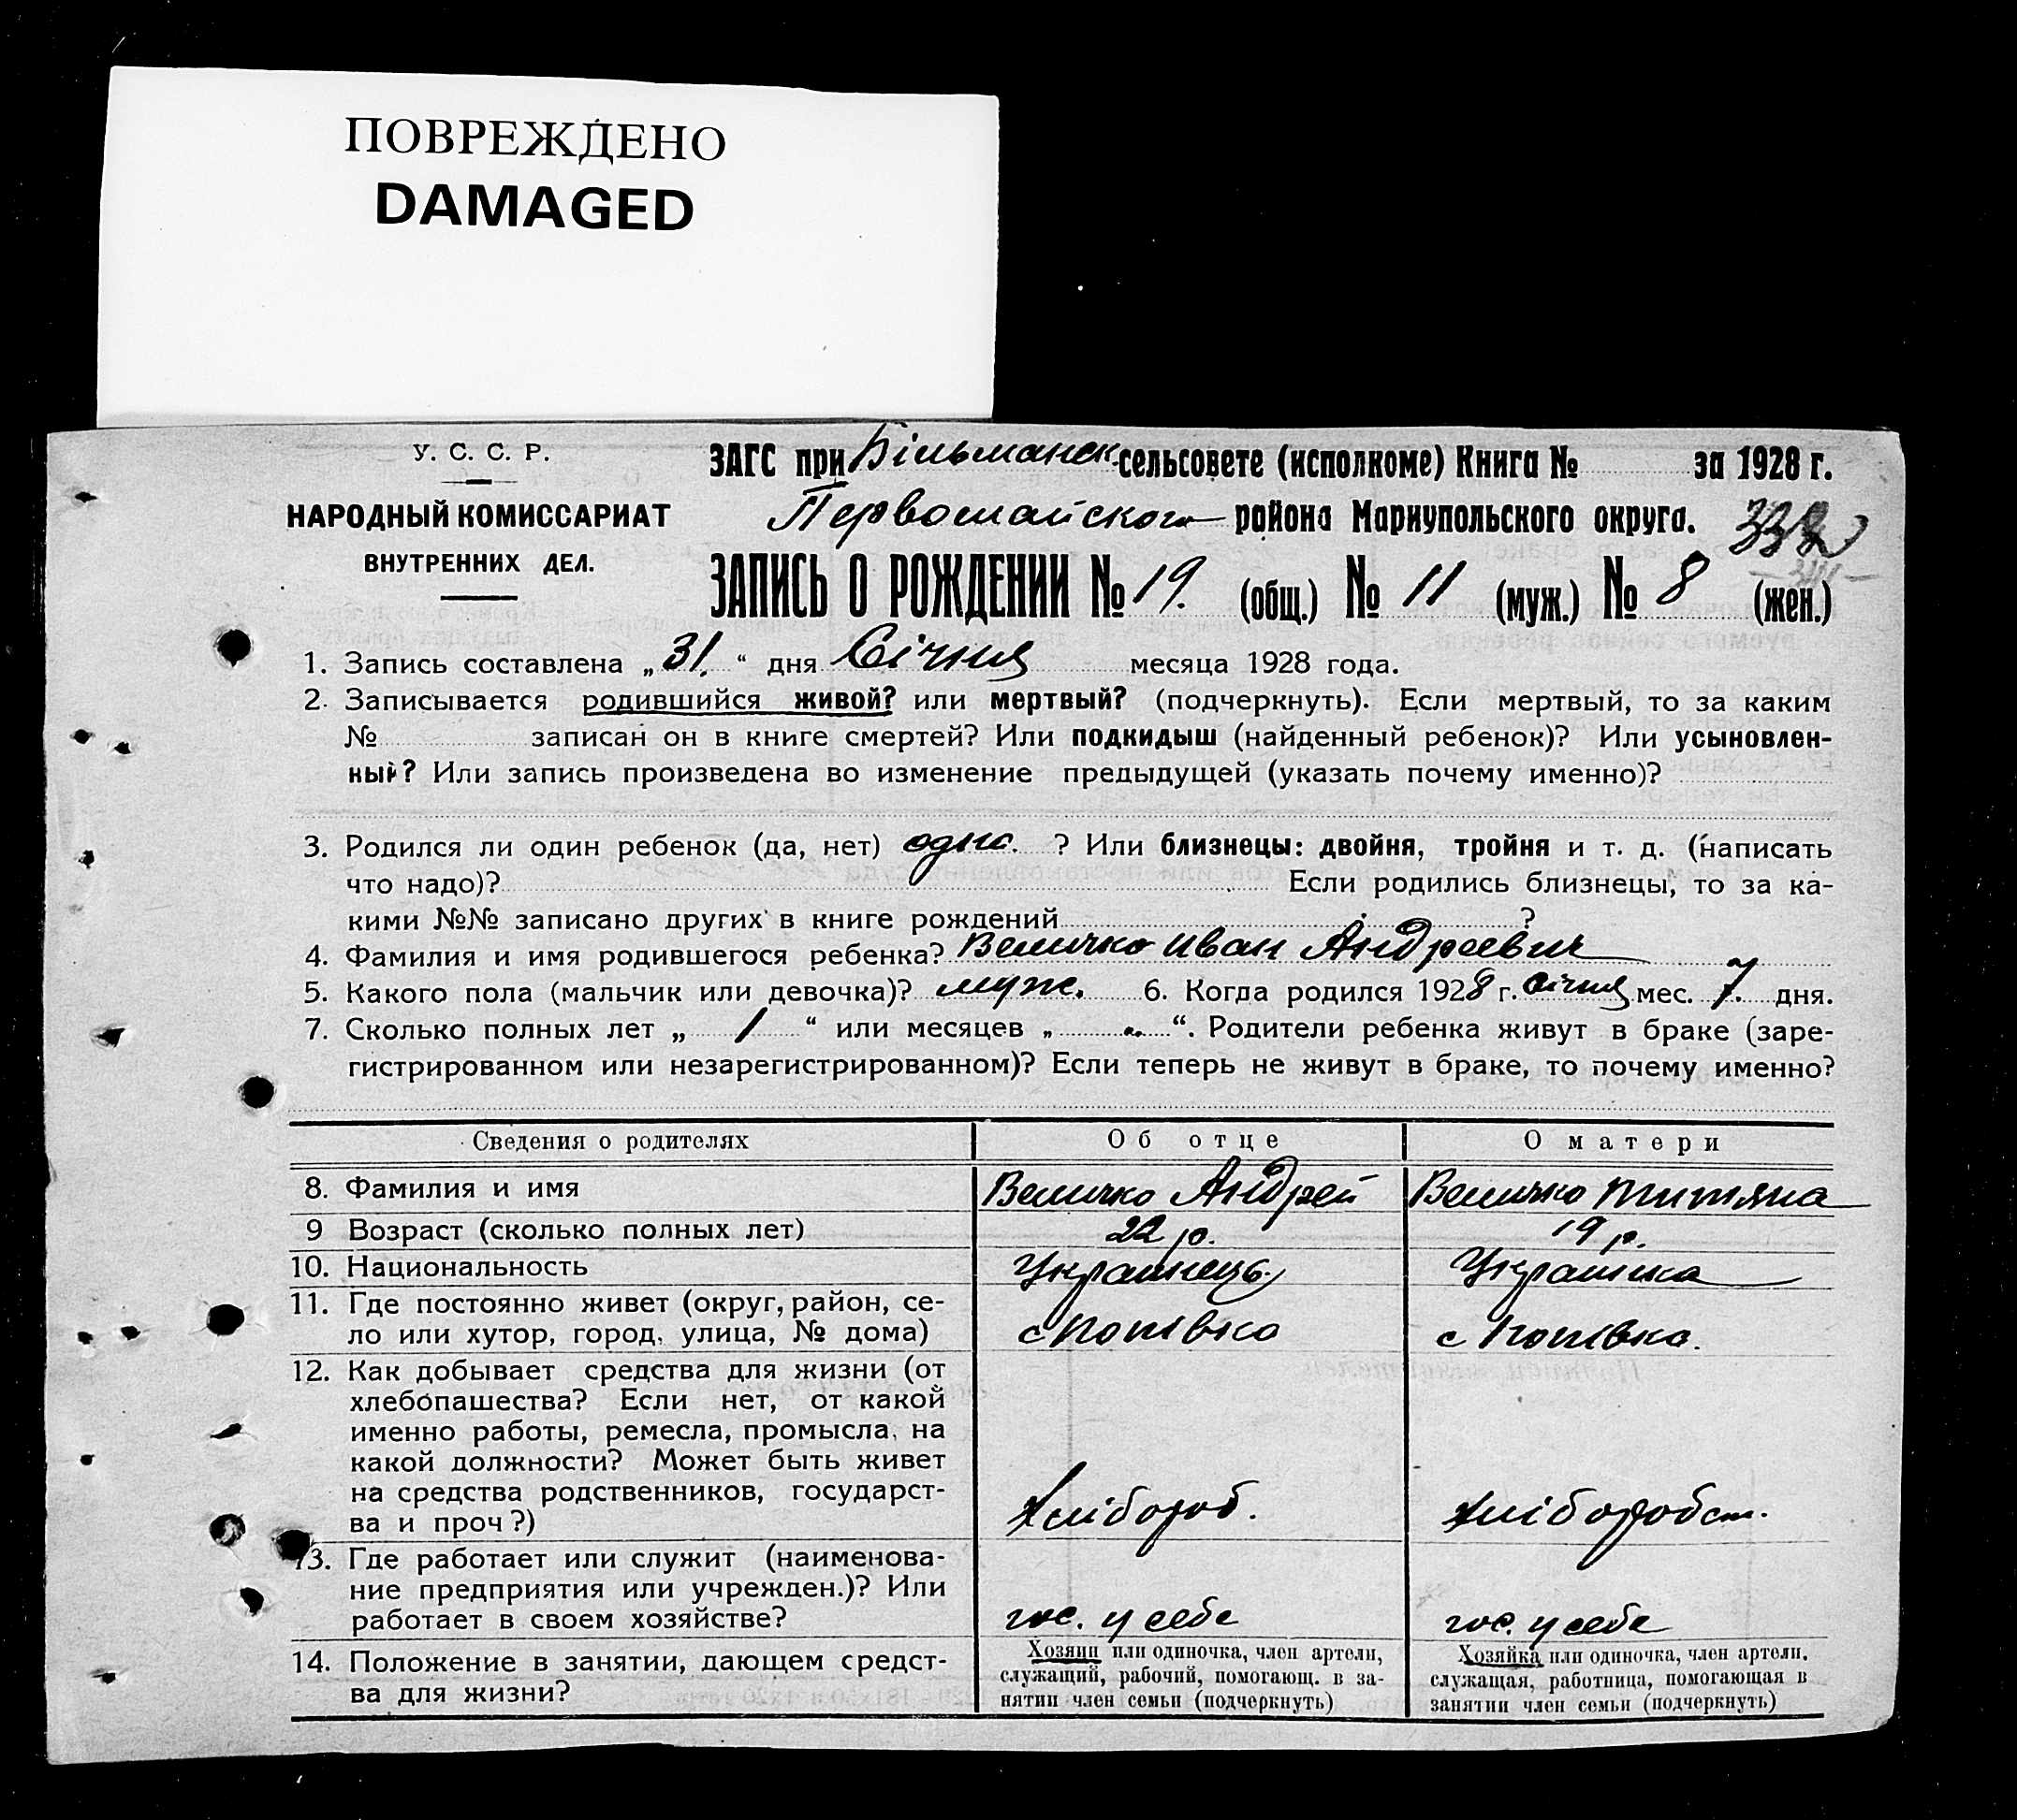 ПОВРЕЖДЕНО
DAMAGED
У. С. С. Р.
НАРОДНЫЙ КОМИССАРИАТ
ВНУТРЕННИХ ДЕЛ.
ЗАГС при Більманск. сельсовете (исполкоме) Книга № за 1928 г.
Первомайского района Мариупольского округа.
ЗАПИСЬ О РОЖДЕНИИ № 19. (общ.) № 11 (муж.) № 8 (жен.)
1. Запись составлена „ 31. “ дня Січня месяца 1928 года.
2. Записывается родившийся живой? или мертвый? (подчеркнуть). Если мертвый, то за каким
№ записан он в книге смертей? Или подкидыш (найденный ребенок)? Или усыновлен-
ный? Или запись произведена во изменение предыдущей (указать почему именно)?
3. Родился ли один ребенок (да, нет) одно. ? Или близнецы: двойня, тройня и т. д. (написать
что надо)? Если родились близнецы, то за ка-
кими №№ записано других в книге рождений ?
4. Фамилия и имя родившегося ребенка? Величко Иван Андреевич
5. Какого пола (мальчик или девочка)? муж. 6. Когда родился 1928 г. Січня мес. 7. дня.
7. Сколько полных лет „ 1 “ или месяцев „ “. Родители ребенка живут в браке (заре-
гистрированном или незарегистрированном)? Если теперь не живут в браке, то почему именно?
Сведения о родителях Об отце О матери
8. Фамилия и имя Величко Андрей Величко Титяна
9 Возраст (сколько полных лет) 22 р. 19 р.
10. Национальность Українець Українка
11. Где постоянно живет (округ, район, се-
ло или хутор, город, улица, № дома) с Попівка с Попівка.
12. Как добывает средства для жизни (от
хлебопашества? Если нет, от какой
именно работы, ремесла, промысла, на
какой должности? Может быть живет
на средства родственников, государст-
ва и проч?) Хлібороб. Хліборобст.
13. Где работает или служит (наименова-
ние предприятия или учрежден.)? Или
работает в своем хозяйстве? гос. у себе гос. у себе
14. Положение в занятии, дающем средст-
ва для жизни?
Хозяин или одиночка, член артели,
служащий, рабочий, помогающ. в за-
нятии член семьи (подчеркнуть)
Хозяйка или одиночка, член артели,
служащая, работница, помогающая в
занятии член семьи (подчеркнуть)